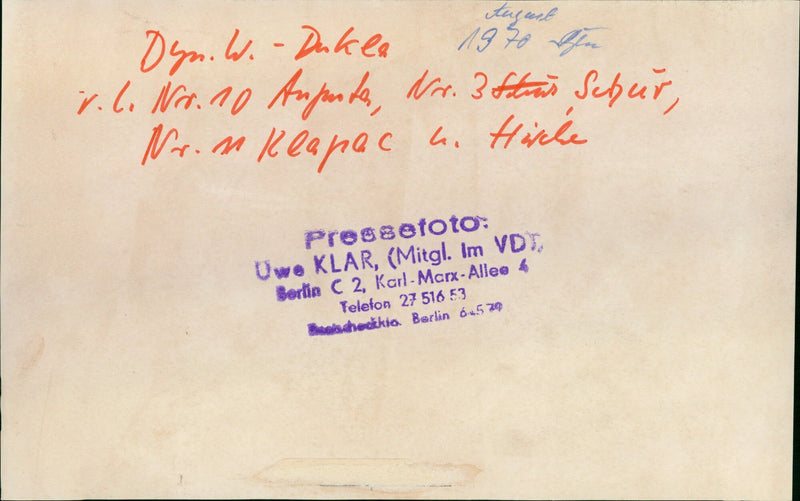 August
1970
Dyn. W. - Dukla
v. l. Nr. 10 Augusta, Nr. 3 Schür,
Nr. 11 Klapac u. Hische
Pressefoto:
Uwe KLAR, (Mitgl. im VDJ)
Berlin C 2, Karl-Marx-Allee 4
Telefon 27 516 53
Postscheckkto. Berlin